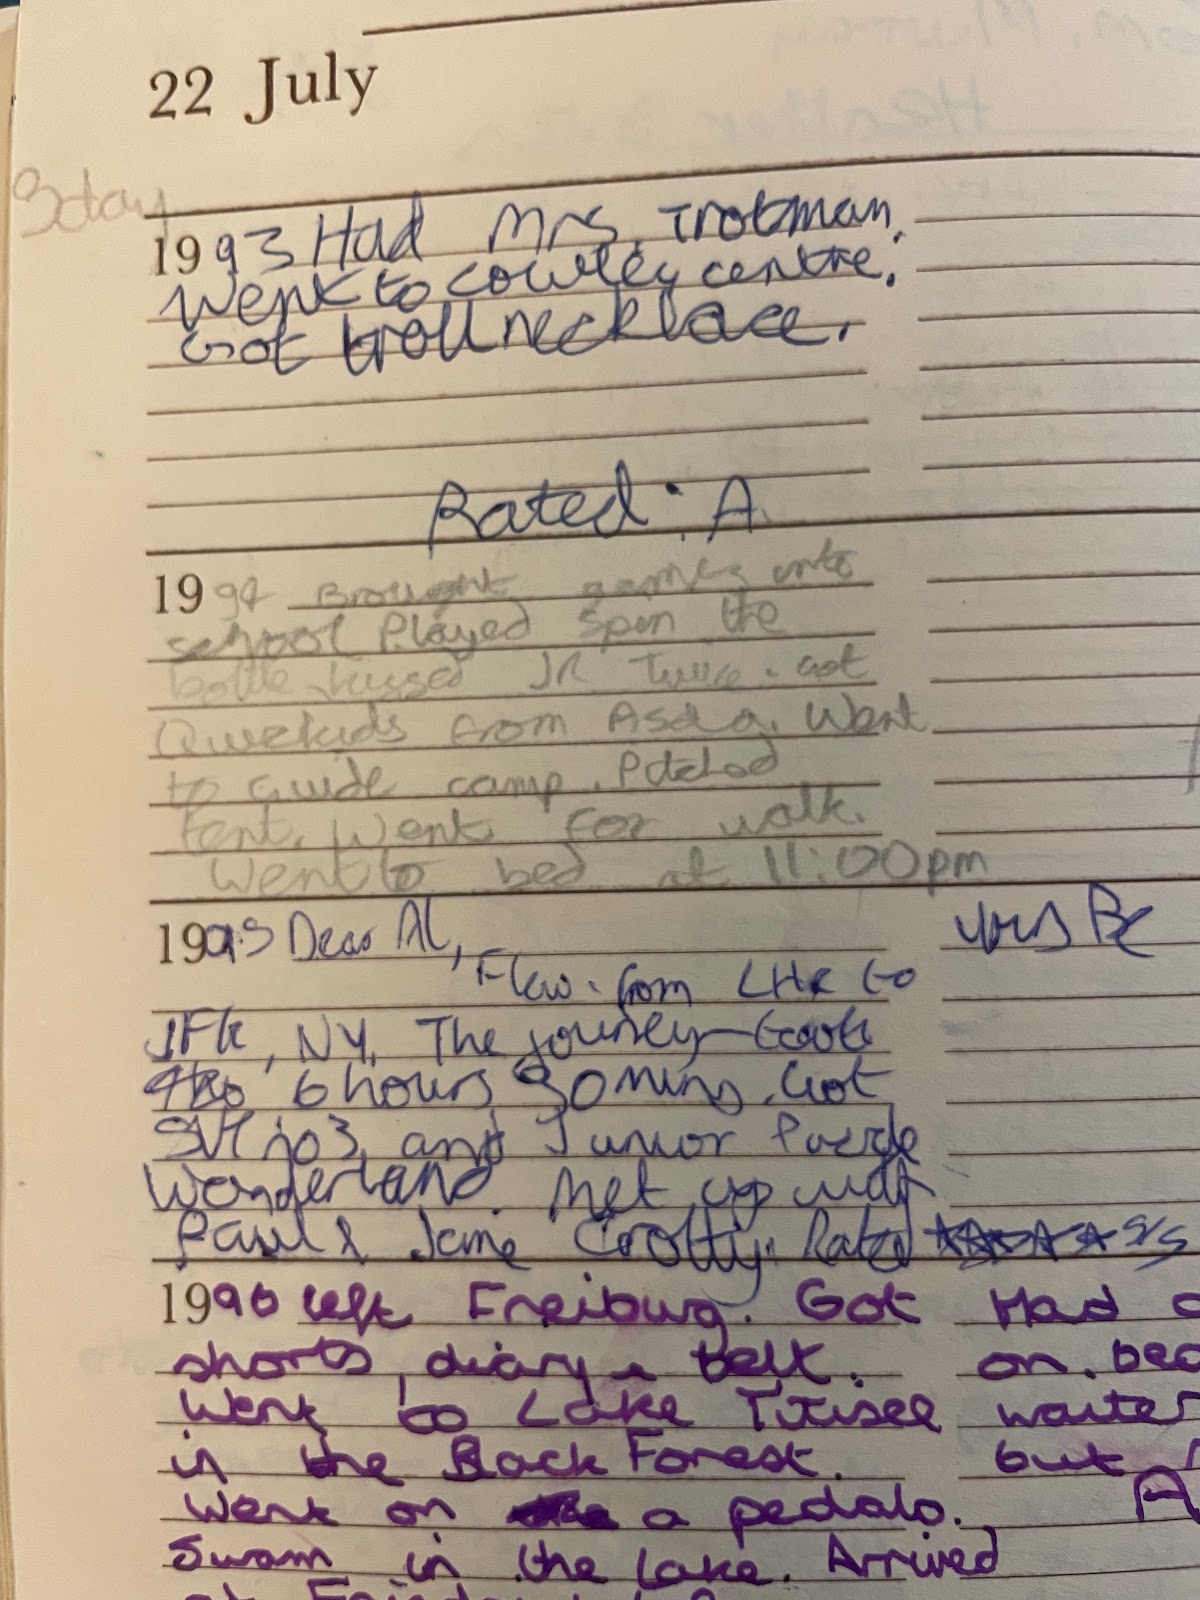 22 July
1993 Had Mrs. Trotman.
Went to cowley centre.
Got troll necklace.
Rated: A
1994 Brought games into
school Played Spin the
bottle kissed JR Twice. Got
from Asda. Went
to Guide camp. Pitched
tent. Went for walk.
Went to bed at 11:00pm
1995 Dear Al,
Flew from LHR to
JFK, NY. The journey took
6 hours 30 mins. Got
and Junior Puzzle
Wonderland. Met up with
Paul & Jane Crotty. Rated
yrs
1996 Left Freiburg. Got
shorts, diary & belt.
Went to Lake Titisee
in the Back Forest.
Went on a pedalo.
Swam in the lake. Arrived
at
Had
on.
but
A